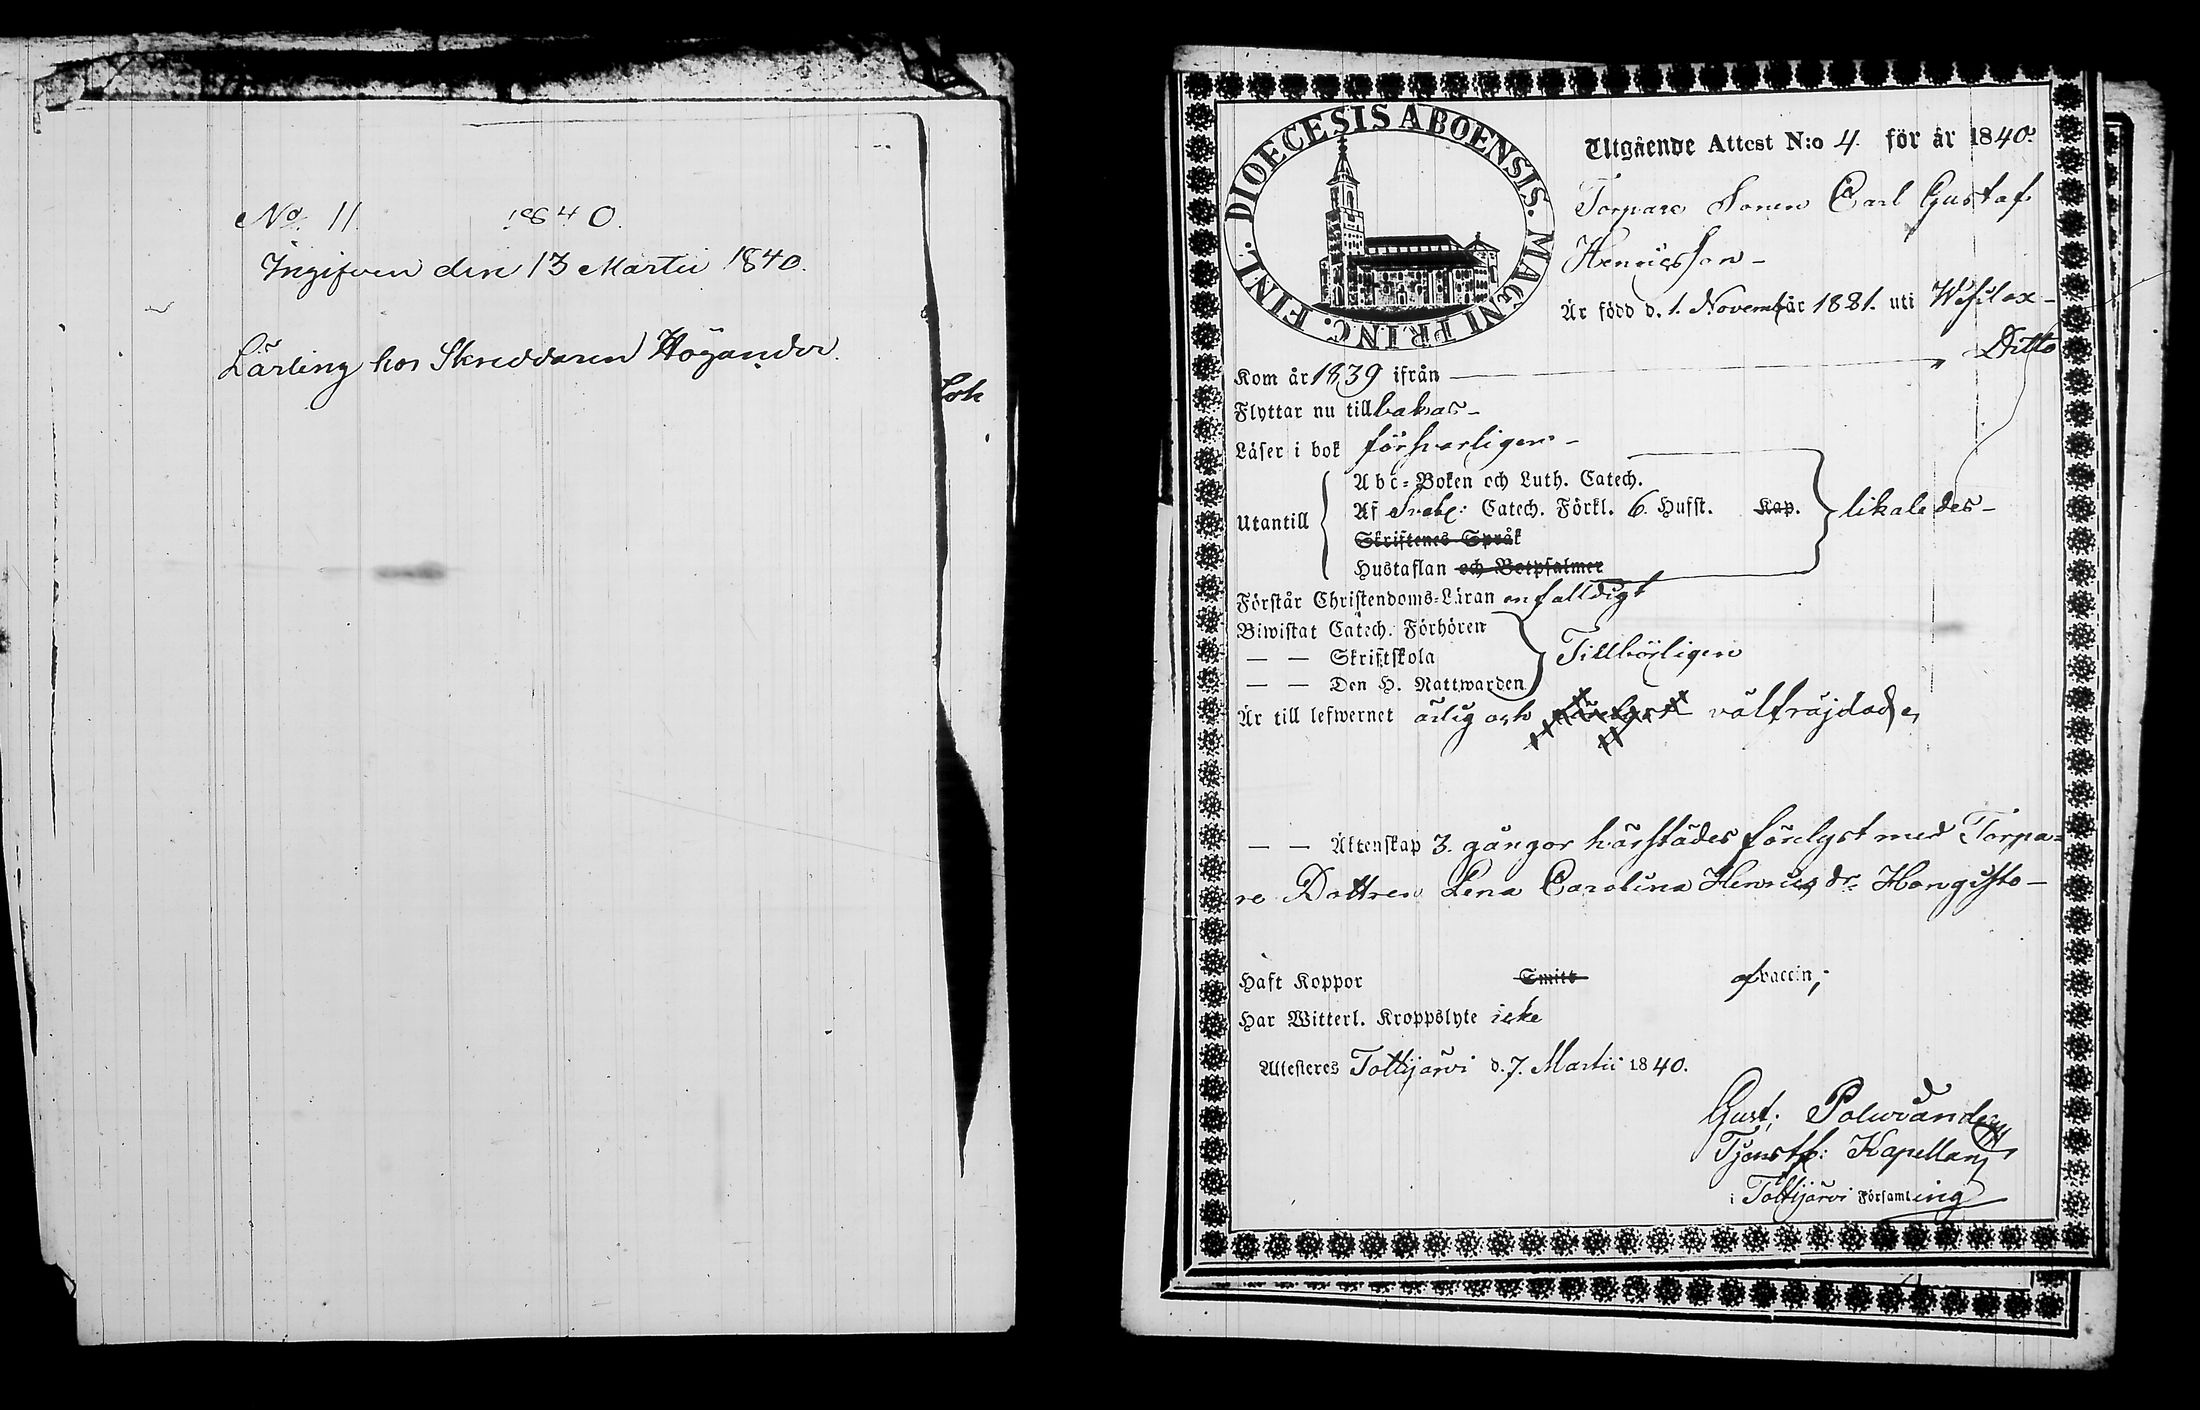 No. 11. 1840.
Ingifven den 13 Martii 1840.
Lärling hos Skreddaren Högander.
DIOECESIS ABOENSIS. MAGNI PRINC. FINL.
Utgående Attest N:o 4. för år 1840.
Torpare Sonen Carl Gustaf
Henricsson -
Är född d. 1. November 1821. uti Wesilax -
Kom år 1839 ifrån Ditto
Flyttar nu tillbakas -
Läser i bok försvarligen -
Utantill
Abc-Boken och Luth. Catech.
Af Sveb: Catech. Förkl. 6. Hufst. Kap.
likaledes -
Skriftenes Språk
Hustaflan och Botpsalmer
Förstår Christendoms-Läran enfalldigt
Biwistat Catech. Förhören
— — Skriftskola
Tillbörligen
— — Den H. Nattwarden
Är till lefwernet ärlig och välfräjdad,
— — Äktenskap 3. gångor härstädes förelyst med Torpa-
re Dottren Lena Carolina Henrics dr Hongisto -
Haft Koppor Smitt af vaccin,
Har Witterl. Kroppslyte icke
Attesteres Tottijärvi d. 7. Martii 1840.
Gust: Polviander
Tjenstf: Kapellan
i Tottijärvi Församling